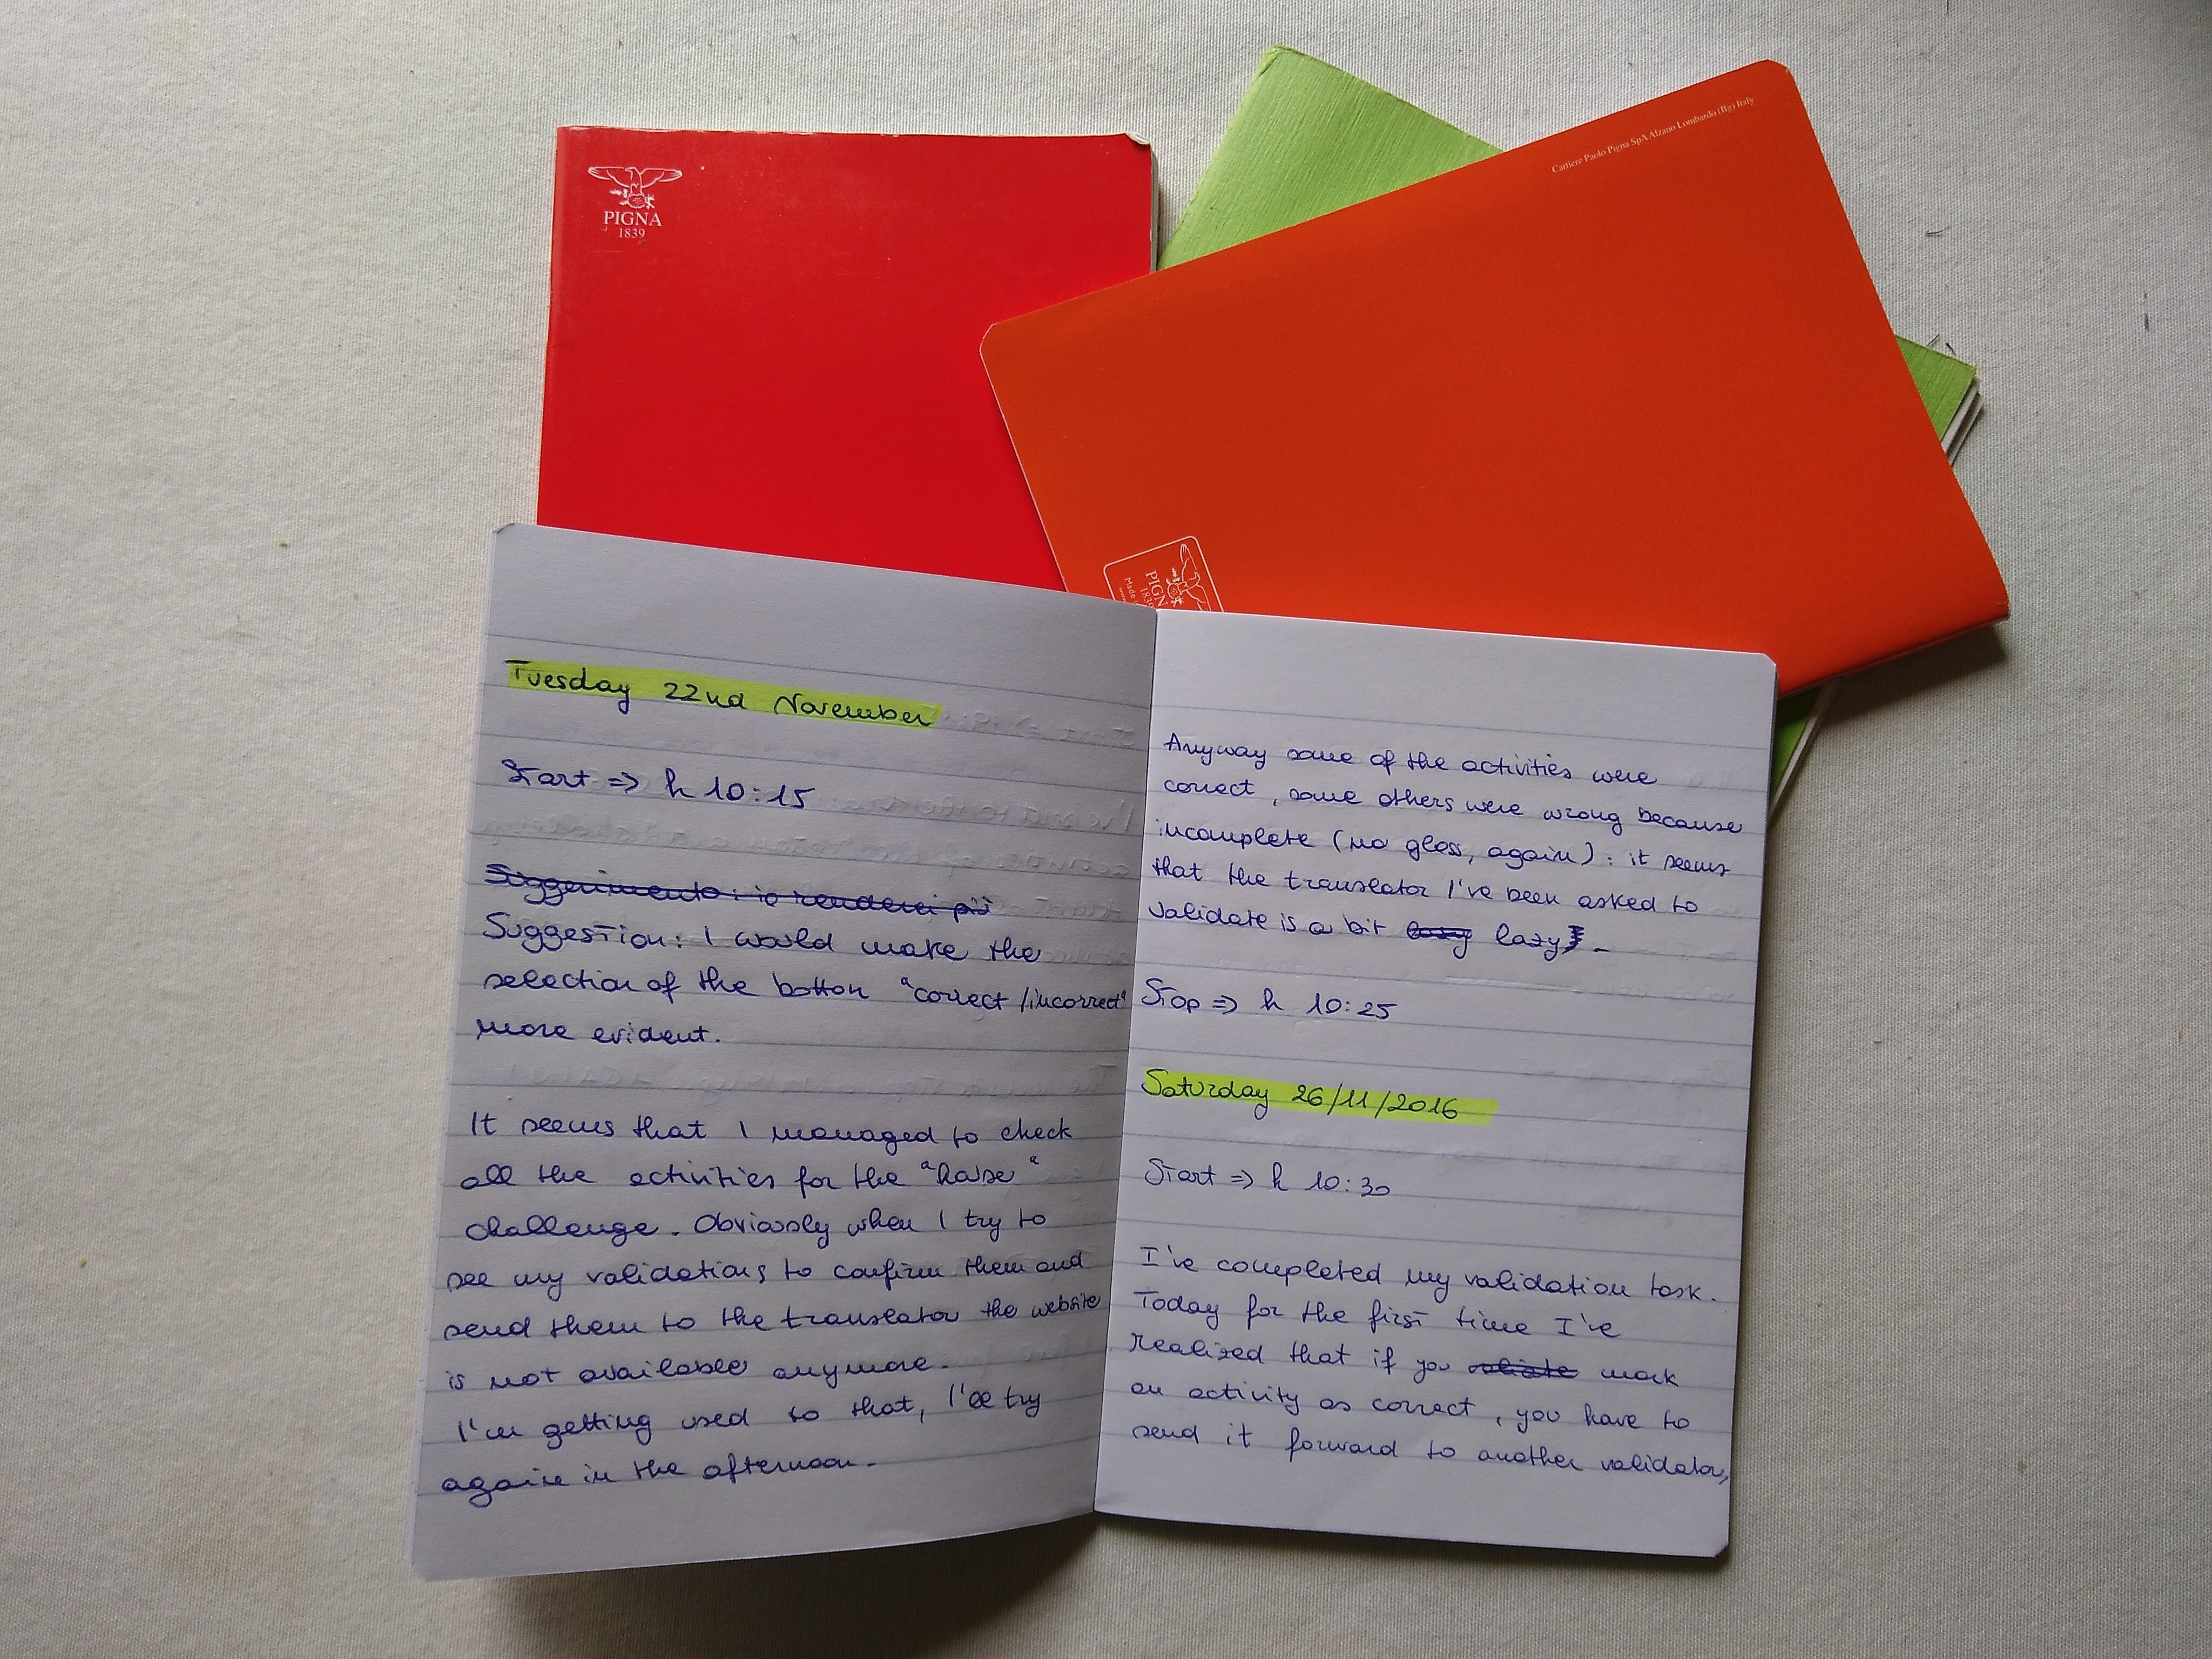 PIGNA
1839
Cartiere Paolo Pigna SpA Alzano Lombardo (Bg) Italy
PIGN
1839
Made
Tuesday 22nd November
Start => h 10:15
Suggerimento: io renderei più
Suggestion: I would make the
selection of the botton "correct/incorrect"
more evident.
It seems that I managed to check
all the activities for the "horse"
challenge. Obviously when I try to
see my validations to confirm them and
send them to the translator the website
is not available anymore.
I'm getting used to that, I'll try
again in the afternoon.
Anyway some of the activities were
correct, some others were wrong because
incomplete (no gloss, again): it seems
that the translator I've been asked to
validate is a bit lazy.
Stop => h 10:25
Saturday 26/11/2016
Start => h 10:30
I've completed my validation task.
Today for the first time I've
realized that if you valiate mark
an activity as correct, you have to
send it forward to another validator,